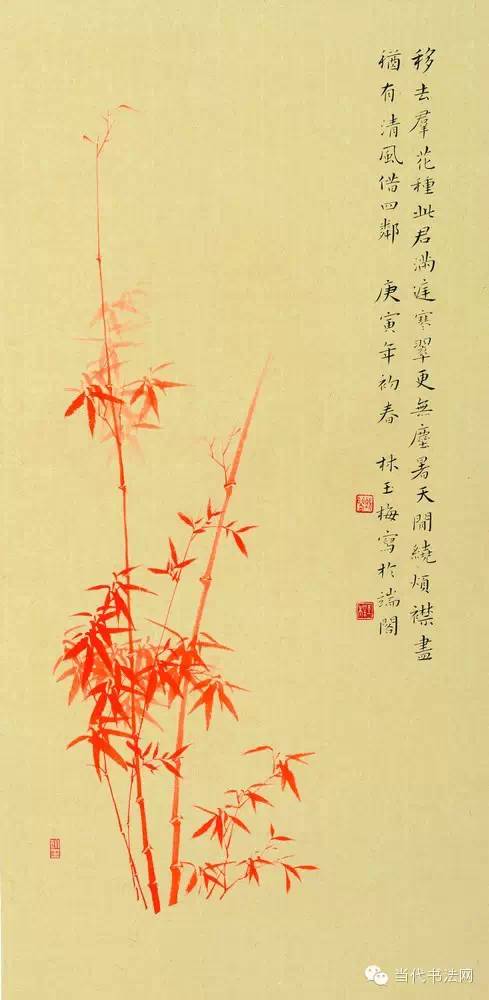 移去羣花種此君滿庭寒翠更無塵暑天閒繞煩襟盡
猶有清風借四鄰 庚寅年初春 林玉梅寫於端閣
当代书法网